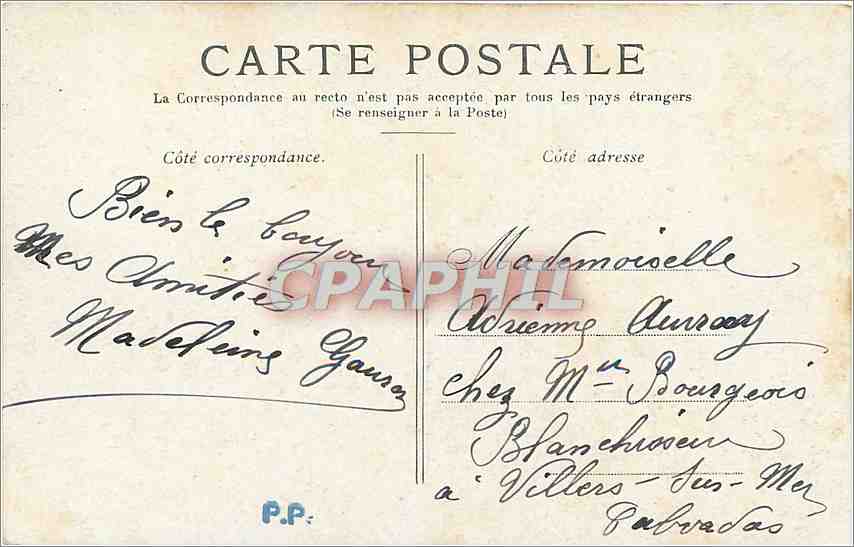 CARTE POSTALE
La Correspondance au recto n'est pas acceptée par tous les pays étrangers
(Se renseigner à la Poste)
Côté correspondance.
Côté adresse
Bien le bonjour
Mes Amitiés
Madeleine
CPAPHIL
Mademoiselle
Adrienne Auray
chez Mme Bourgeois
Blanchisseuse
à Villers-sur-Mer
Calvados
P.P.